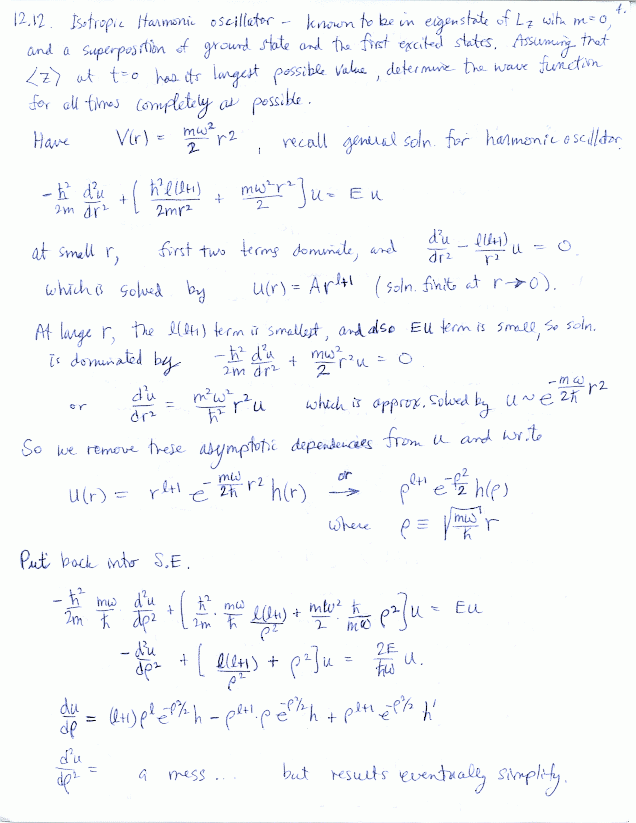 4.
12.12. Isotropic Harmonic oscillator – known to be in eigenstate of L_z with m=0,
and a superposition of ground state and the first excited states. Assuming that
⟨z⟩ at t=0 has its largest possible value, determine the wave function
for all times completely as possible.
Have V(r) = mω²/2 r², recall general soln. for harmonic oscillator
-ħ²/2m d²u/dr² + [ħ²l(l+1)/2mr² + mω²r²/2]u = E u
at small r, first two terms dominate, and d²u/dr² - l(l+1)/r² u = 0.
which is solved by u(r) = A r^{l+1} (soln. finite at r→0).
At large r, the l(l+1) term is smallest, and also Eu term is small, so soln.
is dominated by -ħ²/2m d²u/dr² + mω²/2 r²u = 0
or d²u/dr² = m²ω²/ħ² r²u which is approx. solved by u ~ e^{-mω/2ħ r²}
So we remove these asymptotic dependencies from u and write
u(r) = r^{l+1} e^{-mω/2ħ r²} h(r) or → ρ^{l+1} e^{-ρ²/2} h(ρ)
where ρ ≡ √(mω/ħ) r
Put back into S.E.
-ħ²/2m mω/ħ d²u/dρ² + [ħ²/2m · mω/ħ l(l+1)/ρ² + mω²/2 · ħ/mω ρ²]u = Eu
-d²u/dρ² + [l(l+1)/ρ² + ρ²]u = 2E/ħω u.
du/dρ = (l+1)ρ^l e^{-ρ²/2} h - ρ^{l+1}·ρ e^{-ρ²/2} h + ρ^{l+1} e^{-ρ²/2} h'
d²u/dρ² = a mess... but results eventually simplify.